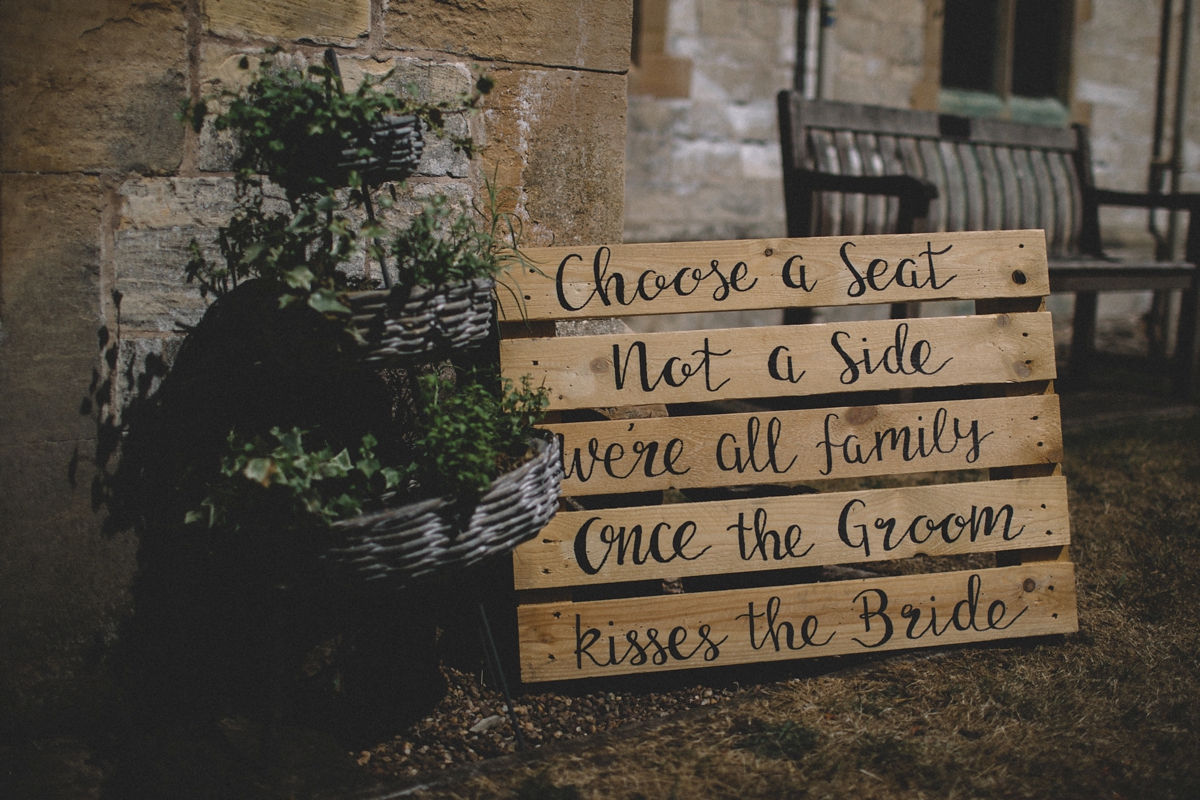 Choose a Seat
Not a Side
we're all family
Once the Groom
kisses the Bride